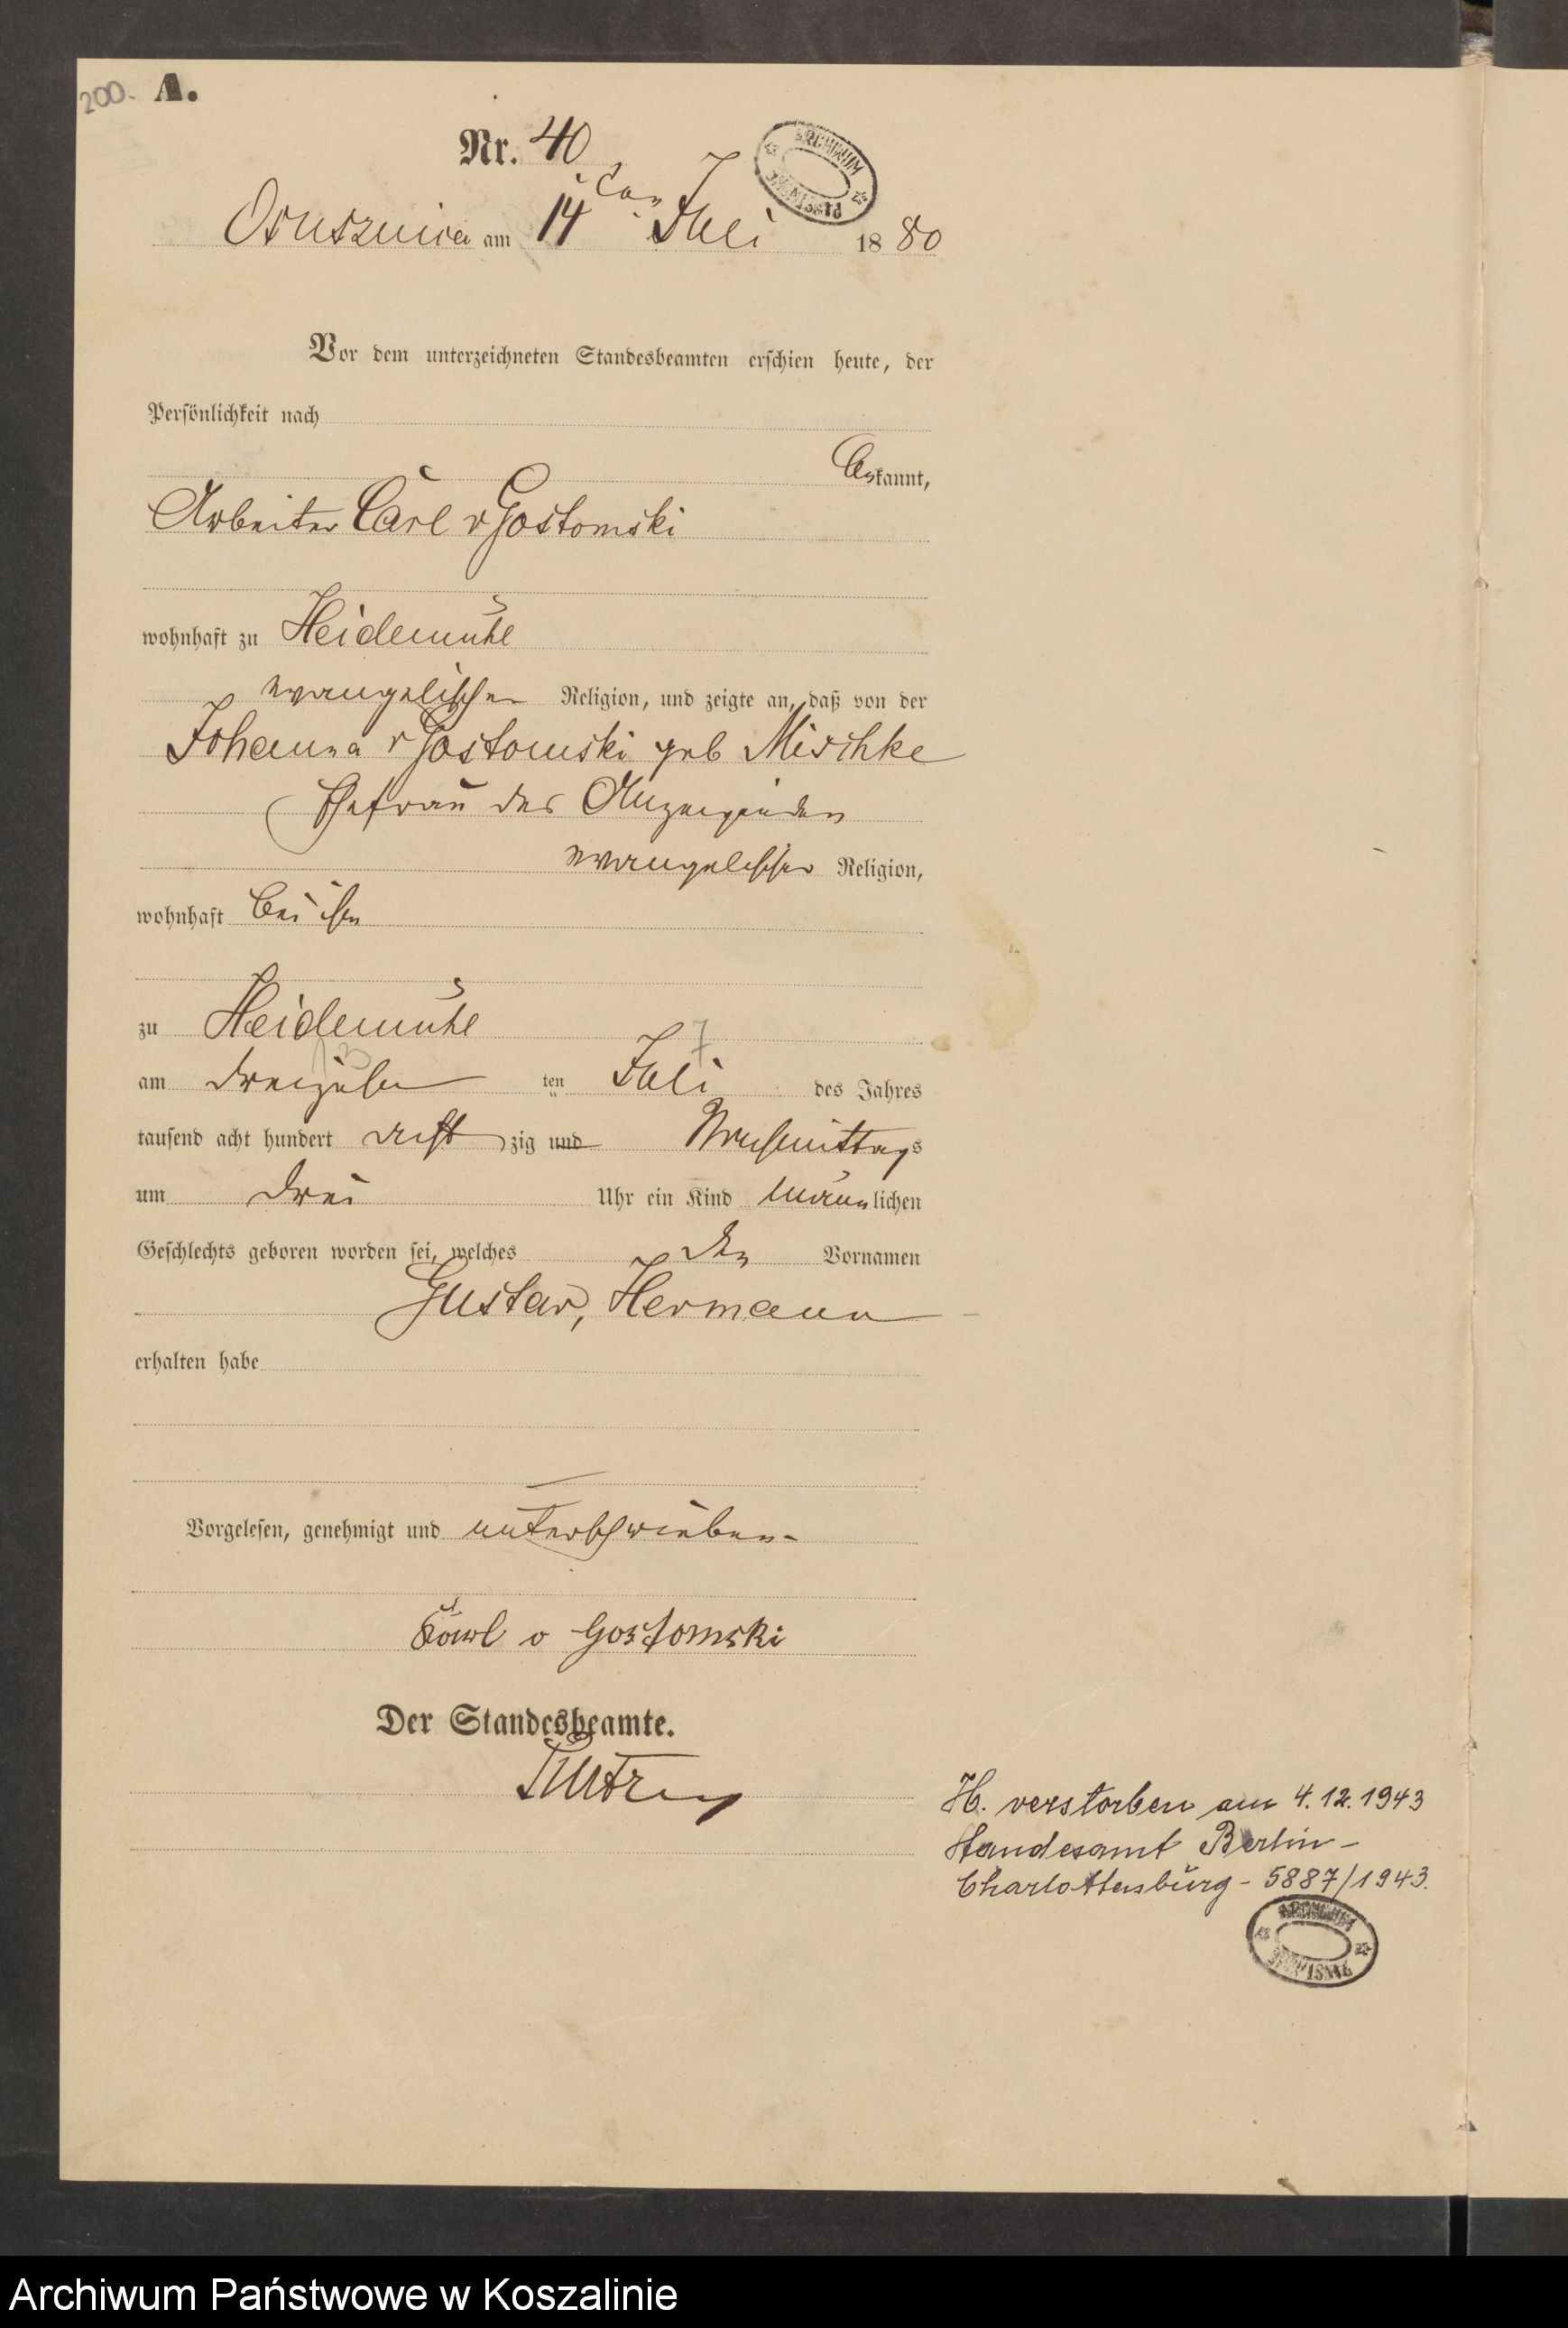 200. A.
Nr. 40
ARCHIWUM
Ossusznica am 14ten Juli 1880
Vor dem unterzeichneten Standesbeamten erschien heute, der
Persönlichkeit nach
bekannt,
Arbeiter Carl v Gostomski
wohnhaft zu Heidemühl
evangelischer Religion, und zeigte an, daß von der
Johanna v Gostomski geb Mischke
Ehefrau des Anzeigenden
evangelischer Religion,
wohnhaft bei ihm
zu Heidemühl
13 7
am dreizehn ten Juli des Jahres
tausend acht hundert acht zig und Nachmittags
um drei Uhr ein Kind männlichen
Geschlechts geboren worden sei, welches den Vornamen
Gustav, Hermann
erhalten habe
Vorgelesen, genehmigt und unterschrieben
Karl v Gostomski
Der Standesbeamte.
H. verstorben am 4.12.1943
Standesamt Berlin-
Charlottenburg - 5887/1943.
ARCHIWUM
Archiwum Państwowe w Koszalinie